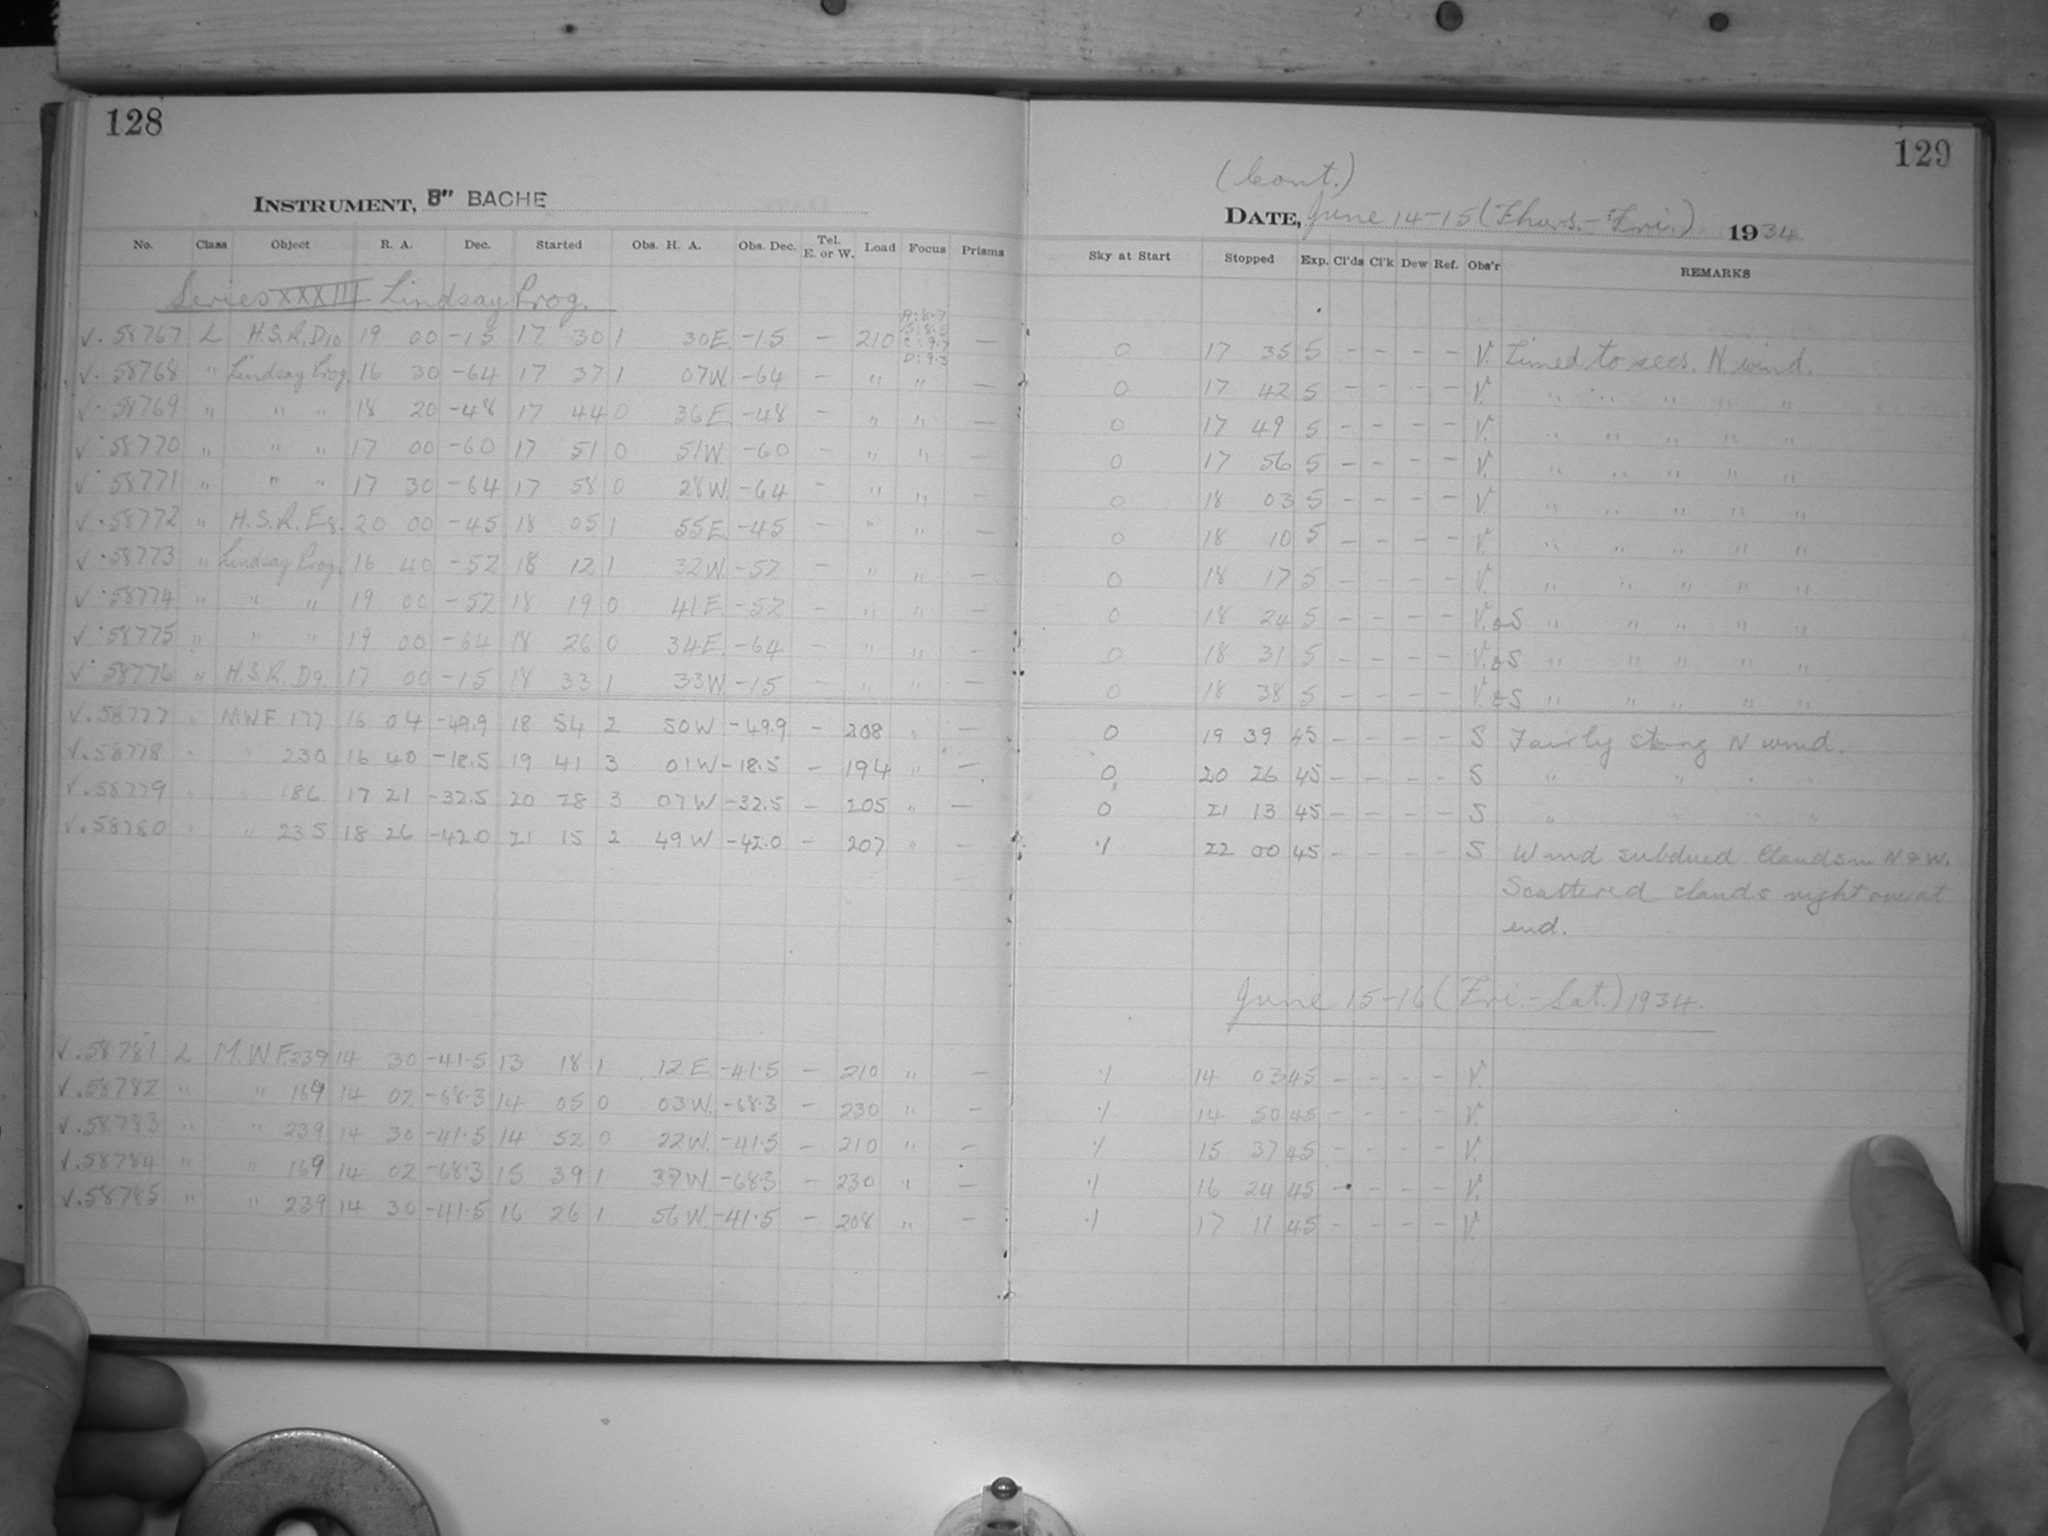 128
INSTRUMENT, 8" BACHE
No. Class Object R. A. Dec. Started Obs. H. A. Obs. Dec. Tel. E. or W. Load Focus Prisms
Series XXXIII Lindsay Prog.
V. 58767 L H.S.R. D10 19 00 -15 17 30 1 30 E. -15 - 210 A: 8.7 B: 8.5 C: 9.3 D: 9.3 -
V. 58768 " Lindsay Prog. 16 30 -64 17 37 1 07 W. -64 - " " -
V. 58769 " " " 18 20 -48 17 44 0 36 E. -48 - " " -
V. 58770 " " " 17 00 -60 17 51 0 51 W. -60 - " " -
V. 58771 " " " 17 30 -64 17 58 0 28 W. -64 - " " -
V. 58772 " H.S.R. E8. 20 00 -45 18 05 1 55 E. -45 - " " -
V. 58773 " Lindsay Prog. 16 40 -52 18 12 1 32 W. -52 - " " -
V. 58774 " " " 19 00 -52 18 19 0 41 E. -52 - " " -
V. 58775 " " " 19 00 -64 18 26 0 34 E. -64 - " " -
V. 58776 " H.S.R. D9. 17 00 -15 18 33 1 33 W. -15 - " " -
V. 58777 " MWF 177 16 04 -49.9 18 54 2 50 W -49.9 - 208 " -
V. 58778 " " 230 16 40 -18.5 19 41 3 01 W -18.5 - 194 " -
V. 58779 " " 186 17 21 -32.5 20 28 3 07 W -32.5 - 205 " -
V. 58780 " " 235 18 26 -42.0 21 15 2 49 W -42.0 - 207 " -
V. 58781 L M.W.F. 239 14 30 -41.5 13 18 1 12 E. -41.5 - 210 " -
V. 58782 " " 169 14 02 -68.3 14 05 0 03 W. -68.3 - 230 " -
V. 58783 " " 239 14 30 -41.5 14 52 0 22 W. -41.5 - 210 " -
V. 58784 " " 169 14 02 -68.3 15 39 1 37 W. -68.3 - 230 " -
V. 58785 " " 239 14 30 -41.5 16 26 1 56 W. -41.5 - 208 " -
129
(Cont.)
DATE, June 14-15 (Thurs.-Fri.) 1934.
Sky at Start Stopped Exp. Cl'ds Cl'k Dew Ref. Obs'r REMARKS
0 17 35 5 - - - - V. Timed to secs. N. wind.
0 17 42 5 - - - - V. " " " " "
0 17 49 5 - - - - V. " " " " "
0 17 56 5 - - - - V. " " " " "
0 18 03 5 - - - - V. " " " " "
0 18 10 5 - - - - V. " " " " "
0 18 17 5 - - - - V. " " " " "
0 18 24 5 - - - - V. & S " " " " "
0 18 31 5 - - - - V. & S " " " " "
0 18 38 5 - - - - V. & S " " " " "
0 19 39 45 - - - - S Fairly strong N wind.
0 20 26 45 - - - - S " " " "
0 21 13 45 - - - - S " " " "
·/ 22 00 45 - - - - S Wind subdued Clouds in N & W.
Scattered clouds right over at
end.
June 15-16 (Fri.-Sat.) 1934.
·/ 14 03 45 - - - - V.
·/ 14 50 45 - - - - V.
·/ 15 37 45 - - - - V.
·/ 16 24 45 - - - - V.
·/ 17 11 45 - - - - V.